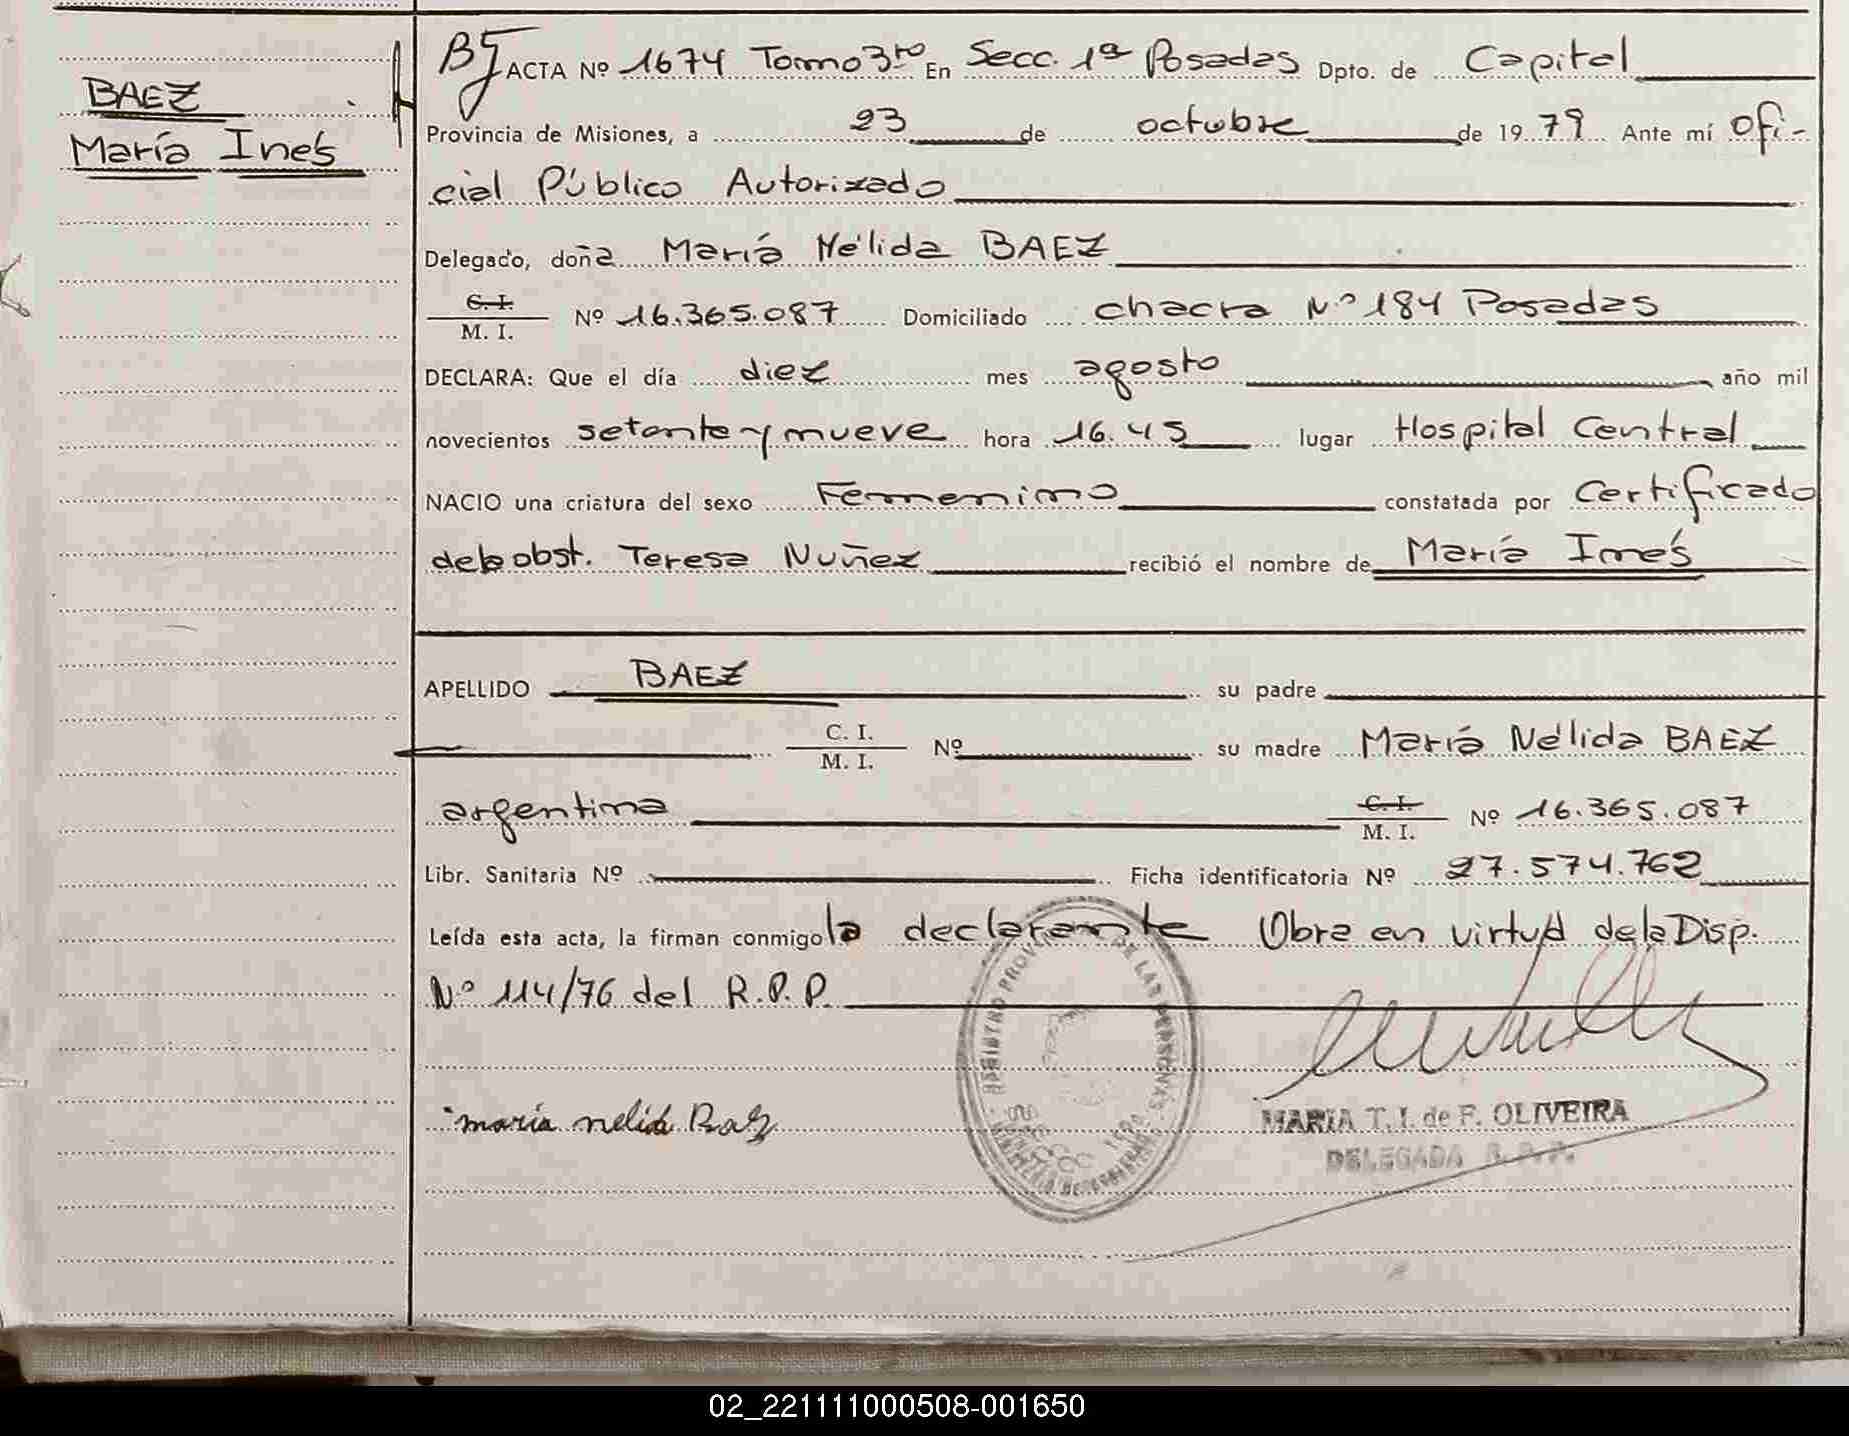 BAEZ
María Inés
BJ ACTA Nº 1674 Tomo 3ro En Secc. 1ª Posadas Dpto. de Capital
Provincia de Misiones, a 23 de octubre de 1979 Ante mí Ofi-
cial Público Autorizado
Delegado, doña María Nélida BAEZ
C. I.
M. I. Nº 16.365.087 Domiciliado chacra Nº 184 Posadas
DECLARA: Que el día diez mes agosto año mil
novecientos setenta y nueve hora 16.45 lugar Hospital Central
NACIO una criatura del sexo Femenino constatada por Certificado
de la obst. Teresa Nuñez recibió el nombre de María Inés
APELLIDO BAEZ su padre
C. I.
M. I. Nº su madre María Nélida BAEZ
argentina C. I.
M. I. Nº 16.365.087
Libr. Sanitaria Nº Ficha identificatoria Nº 27.574.762
Leída esta acta, la firman conmigo la declarante Obra en virtud de la Disp.
Nº 114/76 del R.P.P.
REGISTRO PROVINCIAL DE LAS PERSONAS
maría nelida Baez
MARIA T. I. de F. OLIVEIRA
DELEGADA R. P. P.
02_221111000508-001650